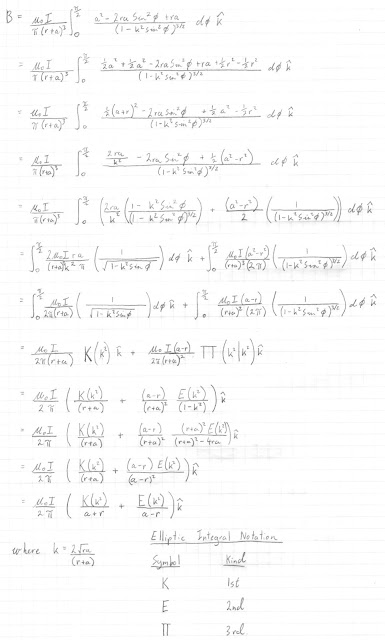 B = μ₀I/π(r+a)³ ∫₀^(π/2) (a² - 2ra Sin²φ + ra)/(1 - k² Sin²φ)^(3/2) dφ k̂
= μ₀I/π(r+a)³ ∫₀^(π/2) (½a² + ½a² - 2ra Sin²φ + ra + ½r² - ½r²)/(1 - k² Sin²φ)^(3/2) dφ k̂
= μ₀I/π(r+a)³ ∫₀^(π/2) (½(a+r)² - 2ra Sin²φ + ½a² - ½r²)/(1 - k² Sin²φ)^(3/2) dφ k̂
= μ₀I/π(r+a)³ ∫₀^(π/2) (2ra/k² - 2ra Sin²φ + ½(a² - r²))/(1 - k² Sin²φ)^(3/2) dφ k̂
= μ₀I/π(r+a)³ ∫₀^(π/2) (2ra/k² ((1 - k² Sin²φ)/(1 - k² Sin²φ)^(3/2)) + (a² - r²)/2 (1/(1 - k² Sin²φ)^(3/2))) dφ k̂
= ∫₀^(π/2) 2μ₀I ra/(r+a)³k² π (1/√(1 - k² Sinφ)) dφ k̂ + ∫₀^(π/2) μ₀I(a² - r²)/(r+a)³(2π) (1/(1 - k² Sin²φ)^(3/2)) dφ k̂
= ∫₀^(π/2) μ₀I/2π(r+a) (1/√(1 - k² Sinφ)) dφ k̂ + ∫₀^(π/2) μ₀I(a-r)/(r+a)²(2π) (1/(1 - k² Sin²φ)^(3/2)) dφ k̂
= μ₀I/2π(r+a) K(k²) k̂ + μ₀I(a-r)/2π(r+a)² Π(k²|k²) k̂
= μ₀I/2π (K(k²)/(r+a) + (a-r)/(r+a)² E(k²)/(1-k²)) k̂
= μ₀I/2π (K(k²)/(r+a) + (a-r)/(r+a)² (r+a)² E(k²)/((r+a)² - 4ra)) k̂
= μ₀I/2π (K(k²)/(r+a) + (a-r) E(k²)/(a-r)²) k̂
= μ₀I/2π (K(k²)/(a+r) + E(k²)/(a-r)) k̂
where k = 2√ra/(r+a)
Elliptic Integral Notation
Symbol Kind
K 1st
E 2nd
Π 3rd